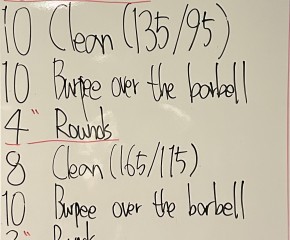 10 Clean (135/95)
10 Burpee over the barbell
4" Rounds
8 Clean (165/115)
10 Burpee over the barbell